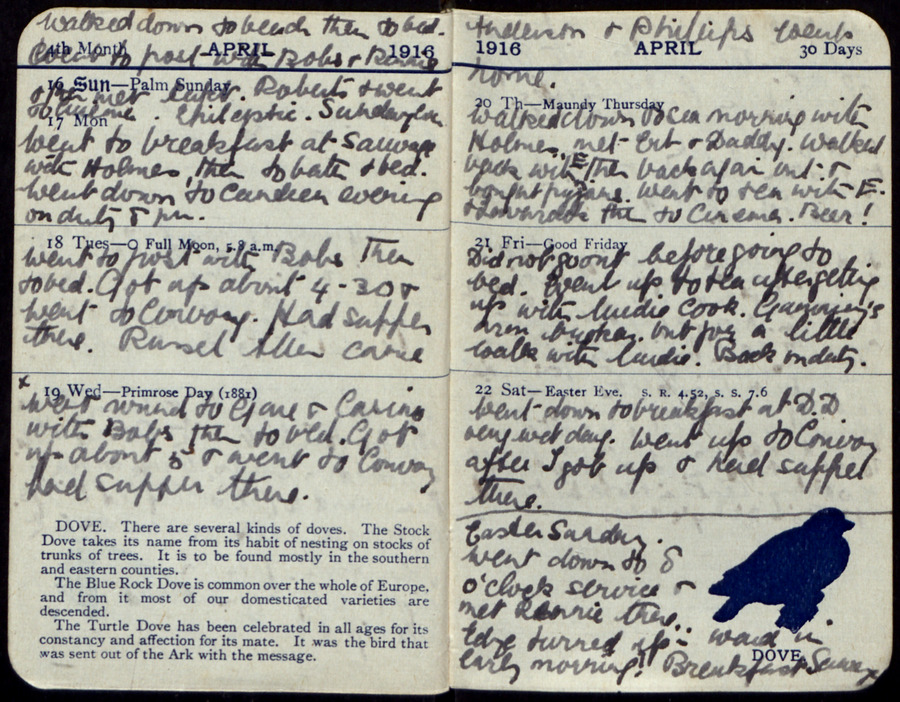 walked down to beach then to bed.
4th Month APRIL 1916
Went to post with Babs & Rennie
16 Sun—Palm Sunday
& then met Robert & went
to Epileptic. Sunday
17 Mon
Went to breakfast at Sauvage
with Holmes, then to bath & bed.
Went down to Camden evening
on duty 8 pm.
18 Tues—O Full Moon, 5.8 a.m.
Went to post with Babs Then
to bed. Got up about 4-30 &
went to Convoy. Had supper
there. Russel Allen came
x
19 Wed—Primrose Day (1881)
Went round to Gare & Casino
with Babs then to bed. Got
up about 5 & went to Convoy
had supper there.
DOVE. There are several kinds of doves. The Stock
Dove takes its name from its habit of nesting on stocks of
trunks of trees. It is to be found mostly in the southern
and eastern counties.
The Blue Rock Dove is common over the whole of Europe,
and from it most of our domesticated varieties are
descended.
The Turtle Dove has been celebrated in all ages for its
constancy and affection for its mate. It was the bird that
was sent out of the Ark with the message.
Anderson & Phillips went
1916 APRIL 30 Days
home.
20 Th—Maundy Thursday
Walked down to sea morning with
Holmes, met & Daddy. Walked
back with E. Then back again &
bought went to tea with E.
& afterwards then to Cinema. Beer!
21 Fri—Good Friday
Did not go out before going to
bed. Went up to tea after getting
up with Cook.
out for a little
walk with Back on duty.
22 Sat—Easter Eve. S. R. 4.52, S. S. 7.6
Went down to breakfast at D.D
very wet day. Went up to Convoy
after I got up & had supper
there.
Easter Sunday.
went down to 8
o'clock service &
met Rennie there.
turned up - in
early morning! Breakfast
DOVE